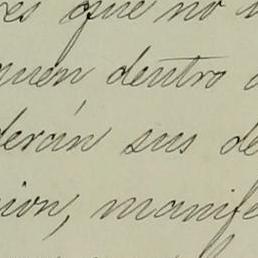 es que no
quen dentro
derán sus de
ion, manife